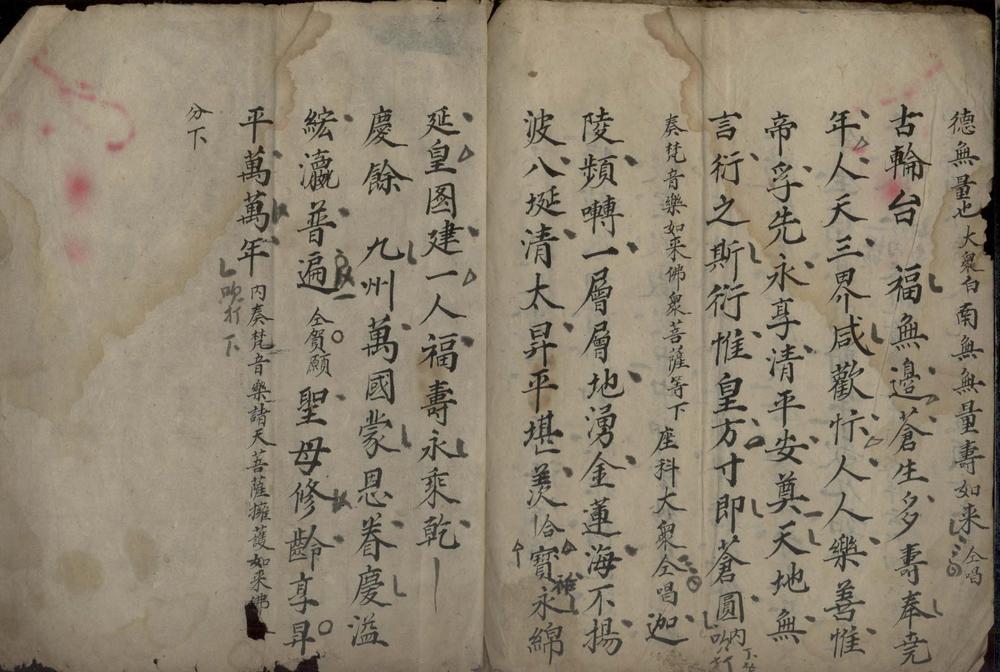 德無量也大衆白南無無量壽如来仝唱
古輪台 福無邊蒼生多壽奉堯
年人天三界咸歡忭人人樂善惟
帝孚先永享清平安奠天地無
言衍之斯衍惟皇方寸即蒼圓内吹打
奏梵音樂如来佛衆菩薩等下座科大衆仝唱迦
陵頻囀一層層地湧金蓮海不揚
波八埏清太昇平堪羨恰寳祚永綿
延皇圖建一人福壽永乘乾
慶餘 九州萬國蒙恩眷慶溢
絃瀛普遍仝賀願聖母修齡享昇
平萬萬年内奏梵音樂諸天菩薩擁護如来佛
吹打下
分下